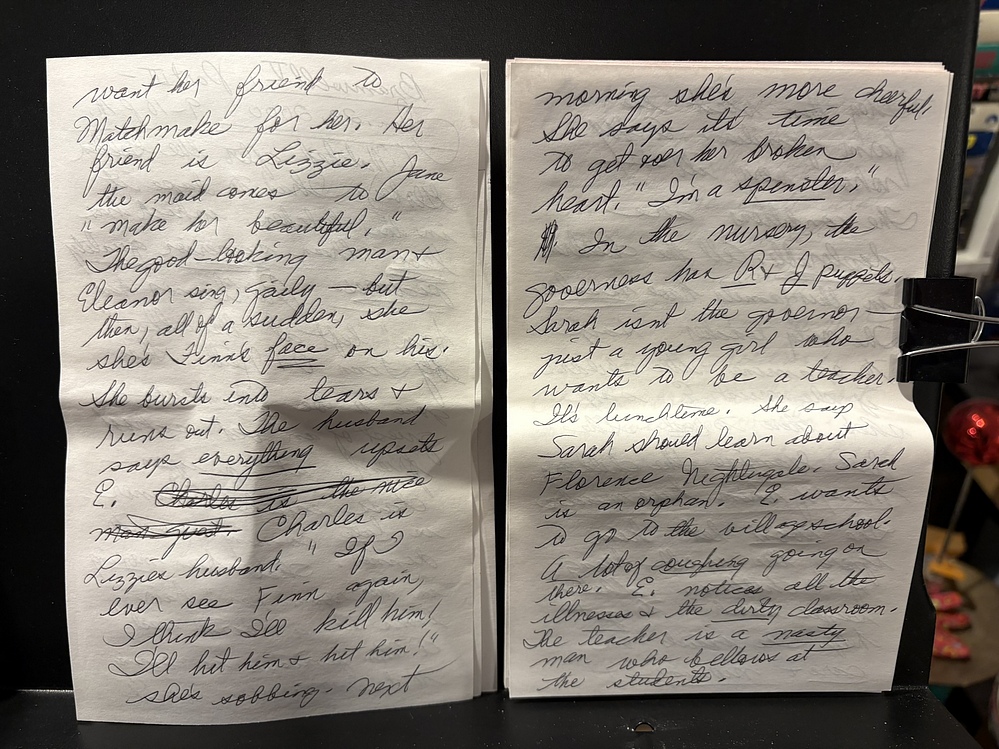 want her friend to
Matchmake for her. Her
friend is Lizzie. Jane
the maid comes to
"make her beautiful."
The good-looking man +
Eleanor sing, gaily — but
then, all of a sudden, she
she's Finn's face on his.
She bursts into tears +
runs out. The husband
says everything upsets
E. Charles is the nice
man guest. Charles is
Lizzies husband. "If I
ever see Finn again,
I think I'll kill him!
I'll hit him + hit him!"
she's sobbing. Next
morning she's more cheerful.
She says it's time
to get over her broken
heart. "I'm a spinster,"
In the nursery, the
governess has R + J puppets.
Sarah isn't the governor —
just a young girl who
wants to be a teacher.
It's lunchtime. She says
Sarah should learn about
Florence Nightingale. Sarah
is an orphan. E. wants
to go to the village school.
A lot of coughing going on
there. E. notices all the
illnesses + the dirty classroom.
The teacher is a nasty
man who bellows at
the students.